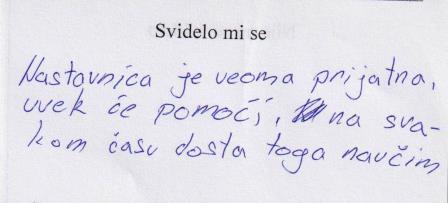 Svidelo mi se
Nastovnica je veoma prijatna,
uvek će pomoći, na sva-
kom času dosta toga naučim